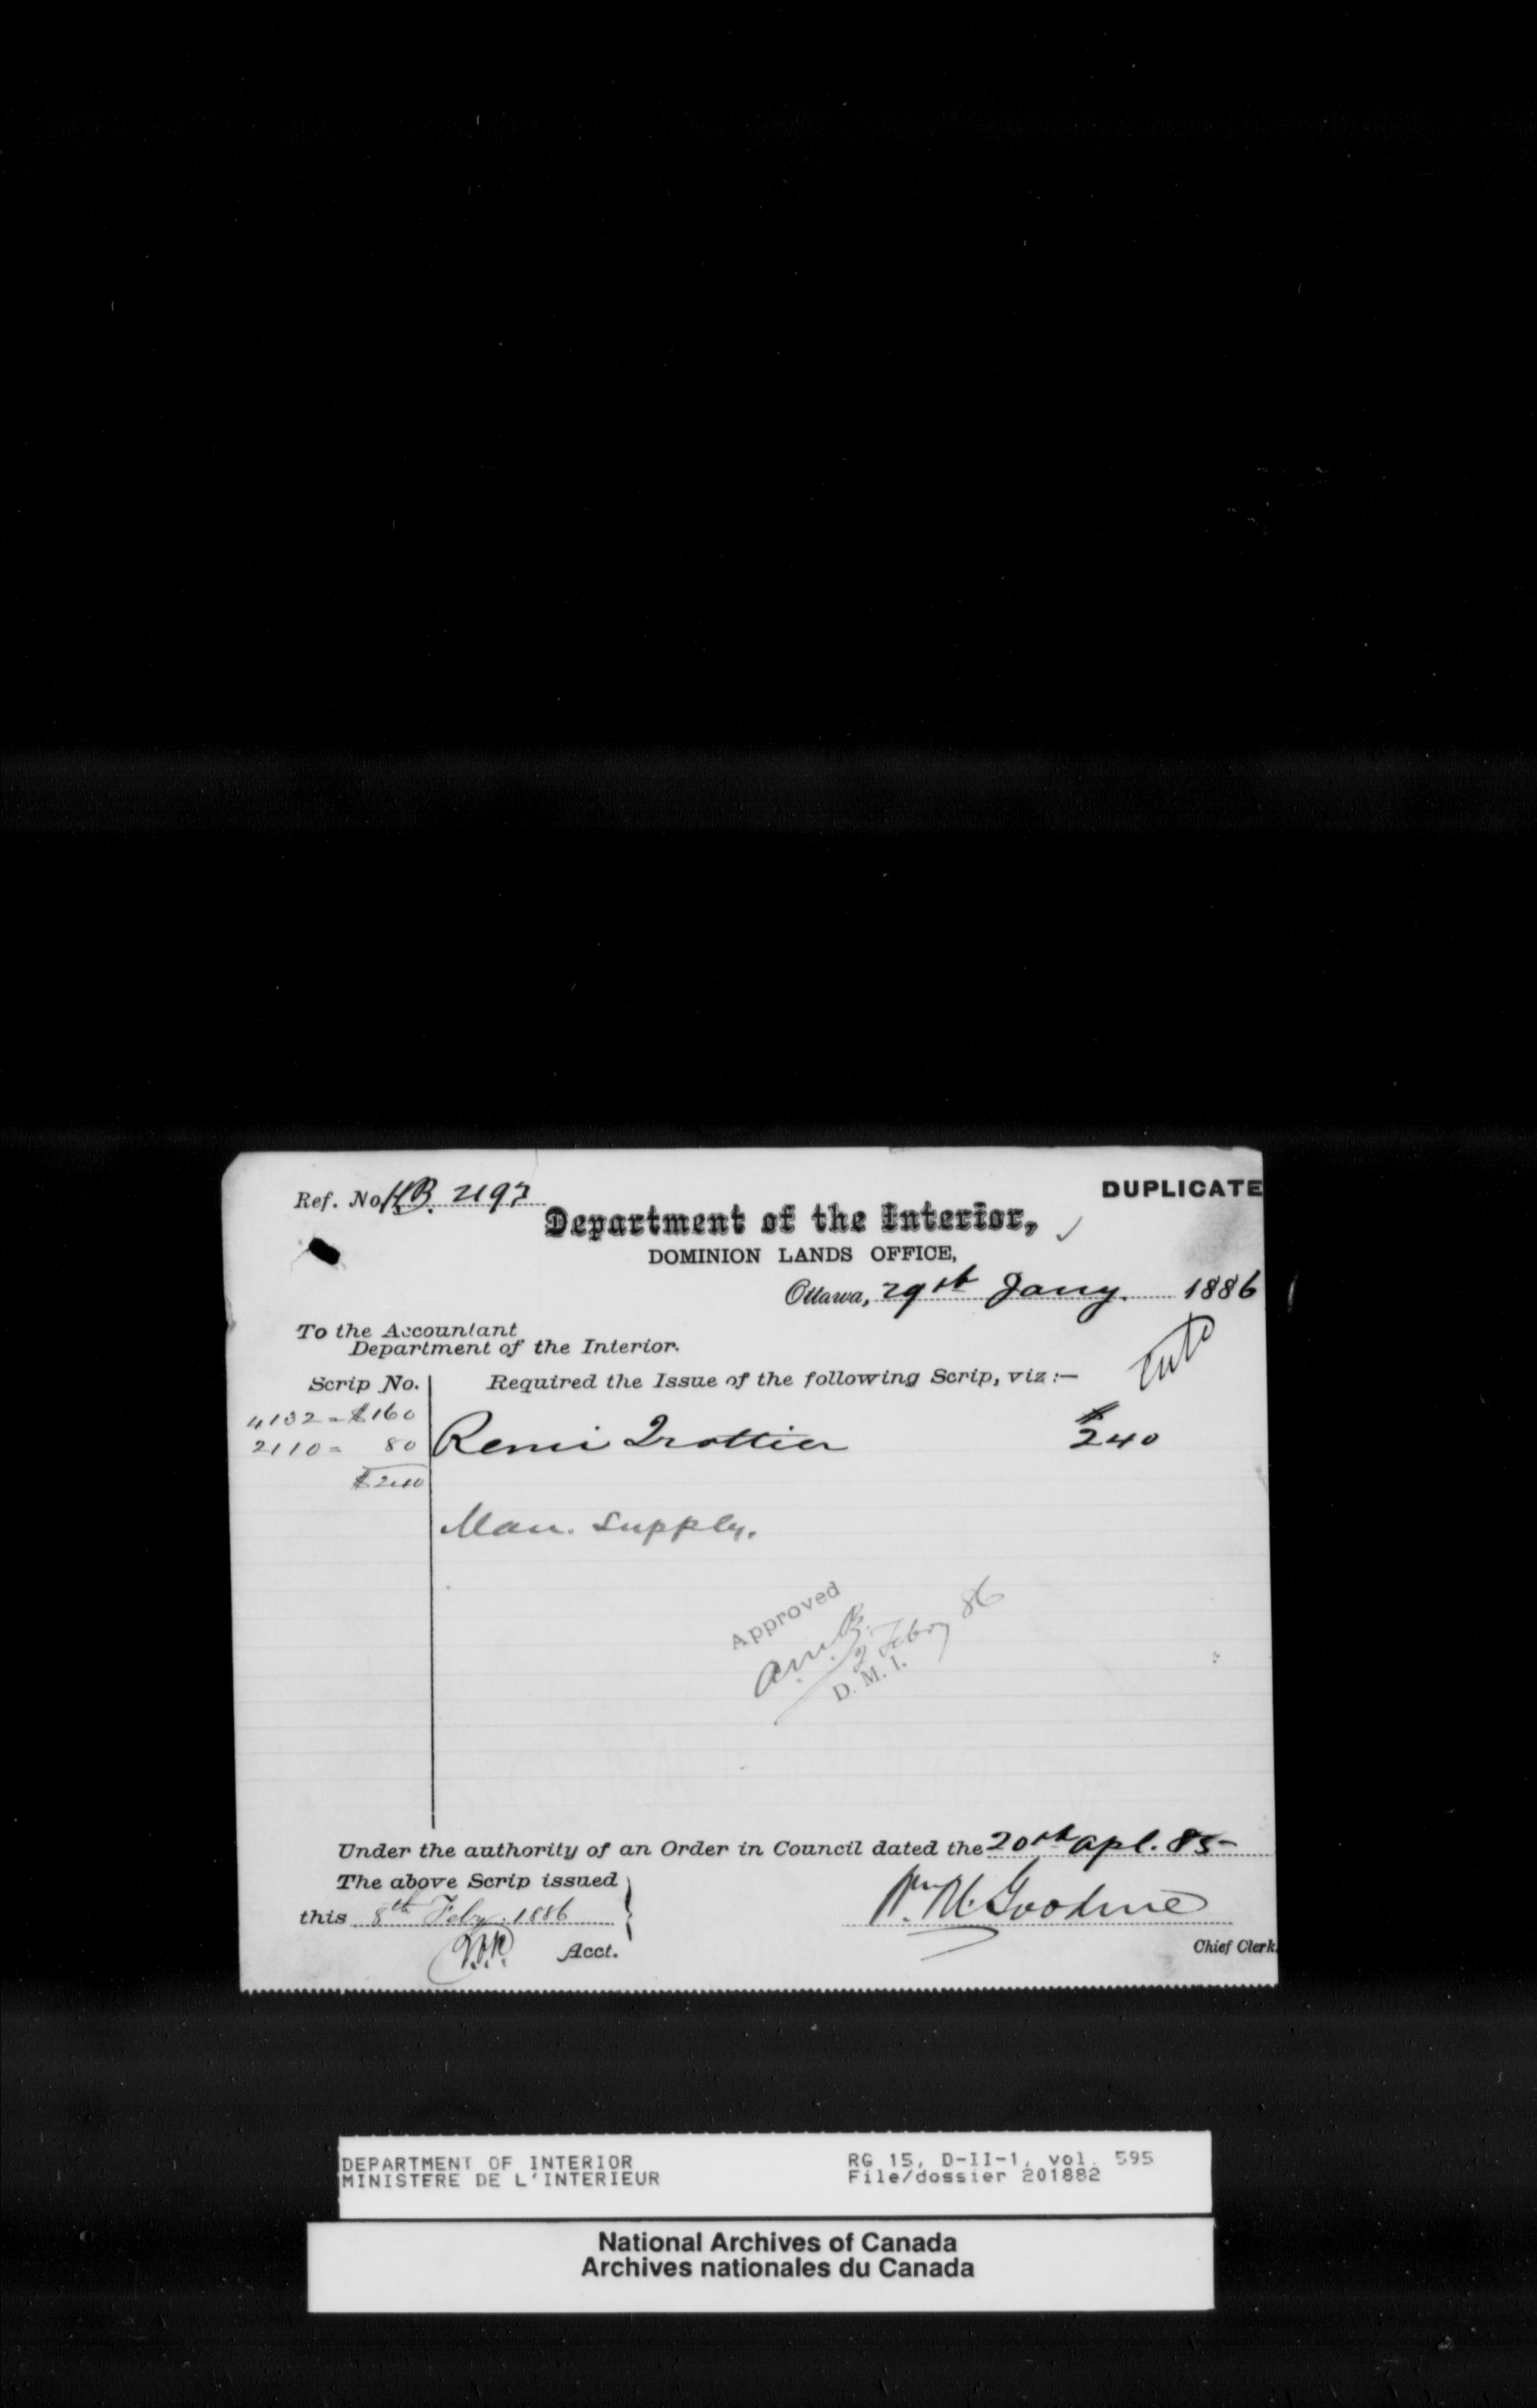 Ref. No. HB. 2197
DUPLICATE
Department of the Interior,
DOMINION LANDS OFFICE,
Ottawa, 29th Jany. 1886
To the Accountant
Department of the Interior.
Scrip No. Required the Issue of the following Scrip, viz:—
4132 = $160
2110 = 80 Remi Trottier $240
$240
Man. Supply.
Approved
A.M.B.
2 Febry 86
D. M. I.
Under the authority of an Order in Council dated the 20th Apl. 85
The above Scrip issued
this 8th Feby. 1886
Acct.
Chief Clerk.
DEPARTMENT OF INTERIOR RG 15, D-II-1, vol. 595
MINISTERE DE L'INTERIEUR File/dossier 201882
National Archives of Canada
Archives nationales du Canada